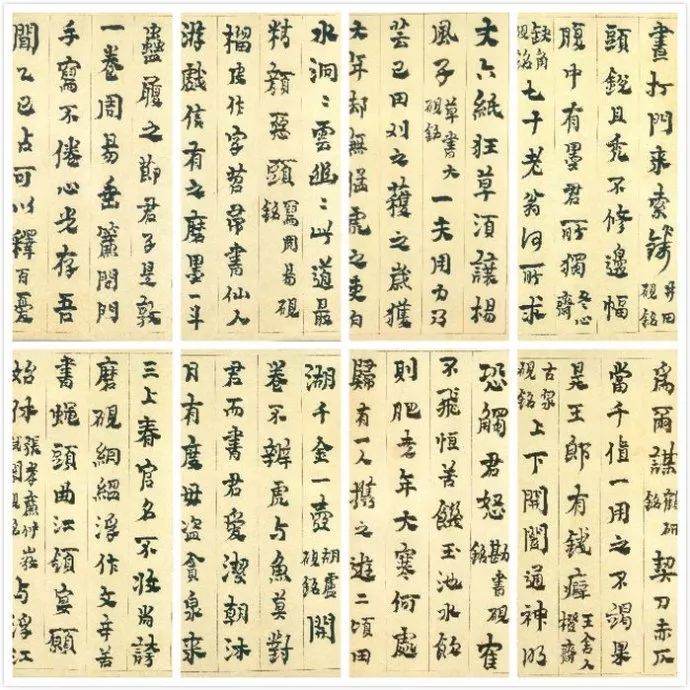 晝打門来索錢 井田硯銘
頭銳且禿不修邊幅
腹中有墨君所獨 冬心齋
缺角硯銘 七十老翁何所求
丈六紙狂草須讓楊
風子 草書大硯銘 一夫用力乃
芸己田刈之穫之歲獲
大年却無猛虎之吏白
水洄洄雲幽幽此道最
精顏惡頭 寫周易硯銘
榴皮作字苕帚書仙人
游戲信有之磨墨一斗
蠱履之節君子是敦
一卷周易垂簾閉門
手寫不倦心光存吾
聞乙巳占可以釋百憂
為爾謀 寉研銘 契刀赤仄
當千值一用之不竭果
是王郎有錢癖 王舍人橙齋
古泉硯銘 上下開闔通神明
恐觸君怒 勘書硯銘 寉
不飛恒苦饑玉池水飽
則肥壽年大寒何處
歸有一人攜之遊二頃田
湖千金一壺 胡盧硯銘 開
卷不辨虎与魚莫對
君而書君愛潔朝沐
日有度毋盜貪泉来
三上春官名不妝尚誇
磨硯絪縕浮作文辛苦
書蠅頭曲江領宴願
始休 張孝廉仲 与浮江